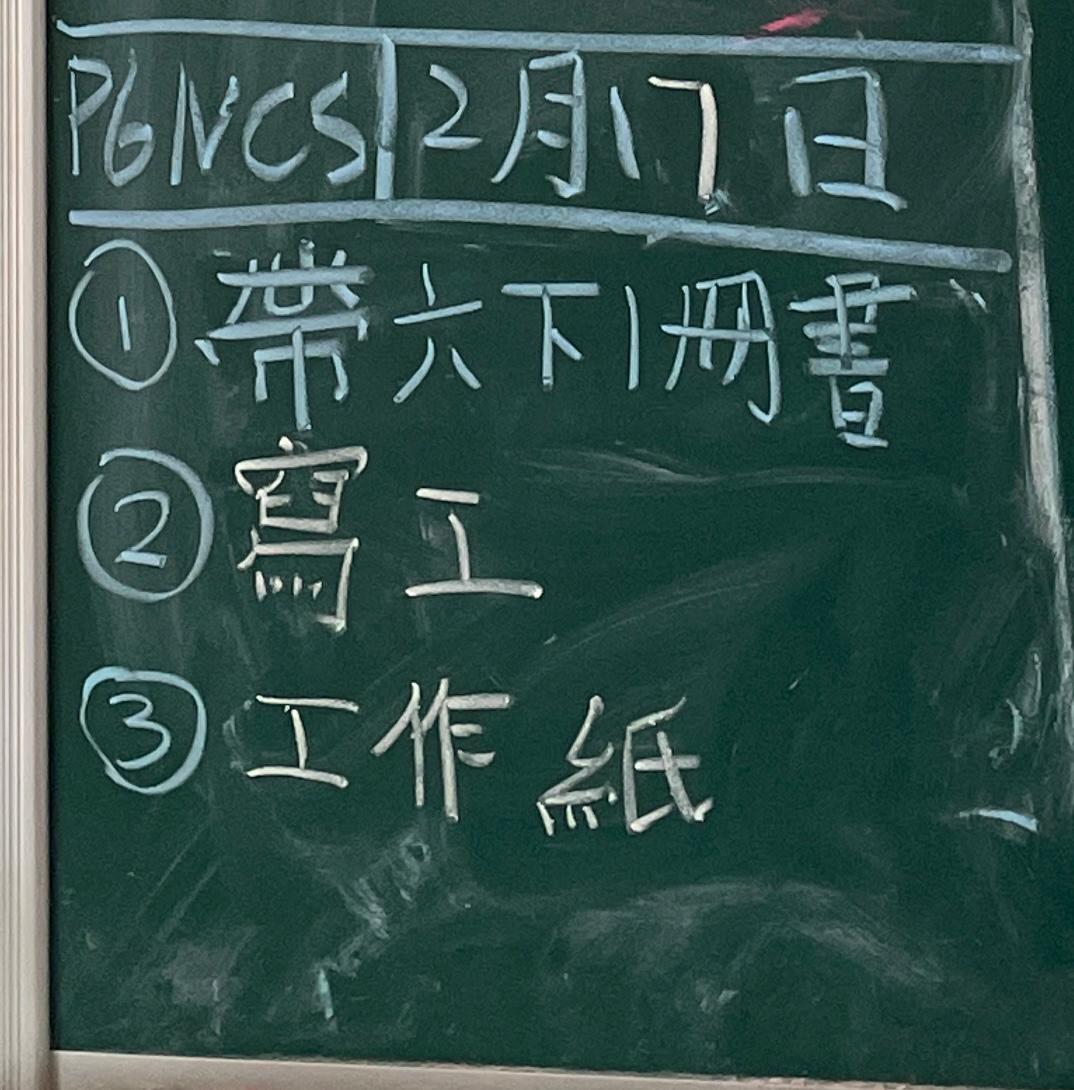 P6NCS 2月17日
① 帶六下1冊書
② 寫工
③ 工作紙